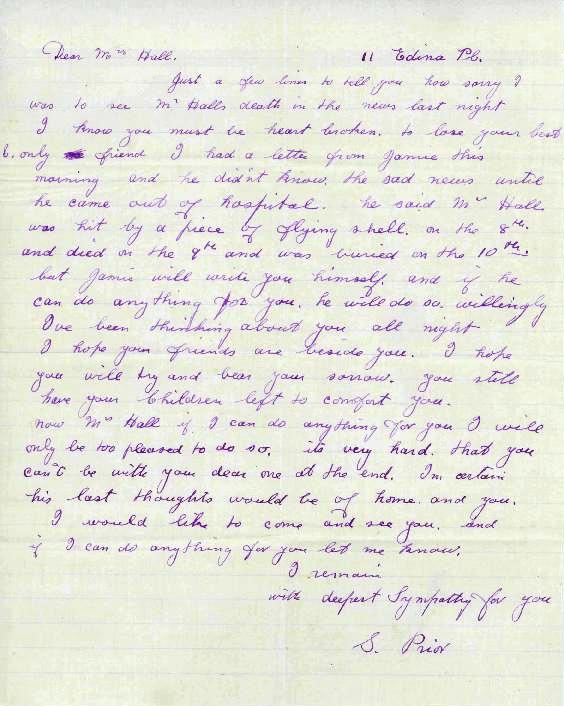 Dear Mrs Hall. 11 Edina Pl.
Just a few lines to tell you how sorry I
was to see Mr Halls death in the news last night
I know you must be heart broken. to lose your best
& only friend I had a letter from Jamie this
morning and he didn't know. the sad news until
he came out of hospital. he said Mr Hall
was hit by a piece of flying shell. on the 8th.
and died on the 9th and was buried on the 10th.
but Jamie will write you himself. and if he
can do anything for you. he will do so. willingly
I've been thinking about you all night
I hope your friends are beside you. I hope
you will try and bear your sorrow. you still
have your Children left to comfort you.
now Mrs Hall if I can do anything for you I will
only be too pleased to do so. its very hard. that you
can't be with your dear one at the end. I'm certain
his last thoughts would be of home. and you.
I would like to come and see you. and
if I can do anything for you let me know.
I remain
with deepest Sympathy for you
S. Prior